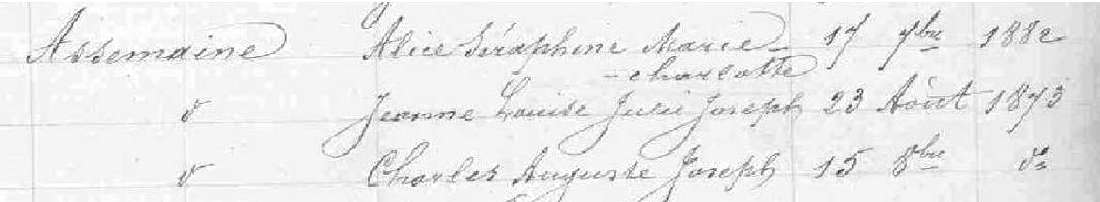 Assemaine Alice Séraphine Marie - 17 7bre 1882
- charlotte
d Jeanne Louise Julie Joseph 23 Août 1873
d Charles Auguste Joseph 15 8bre do